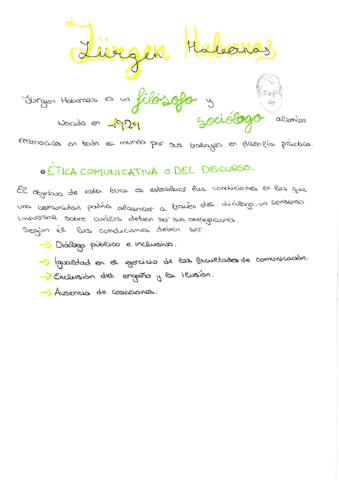 Jürgen Habermas
Jürgen Habermas es un filósofo y
Nacido en 1929 sociólogo alemán
reconocido en todo el mundo por sus trabajos en filosofía práctica.
• ÉTICA COMUNICATIVA O DEL DISCURSO.
El objetivo de esta ética es establecer las condiciones en las que
una comunidad podría alcanzar a través del diálogo, un consenso
universal sobre cuáles deben ser sus obligaciones.
Según él las condiciones deben ser:
→ Diálogo público e inclusivo.
→ Igualdad en el ejercicio de las facultades de comunicación.
→ Exclusión del engaño y la ilusión.
→ Ausencia de coacciones.